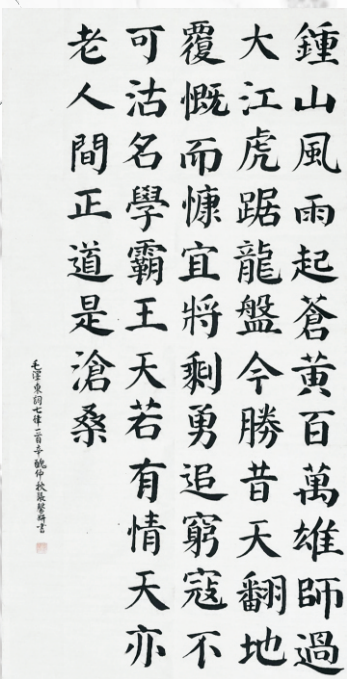 鍾山風雨起蒼黃百萬雄師過
大江虎踞龍盤今勝昔天翻地
覆慨而慷宜將剩勇追窮寇不
可沽名學霸王天若有情天亦
老人間正道是滄桑
毛澤東詞七律一首辛醜仲秋張書